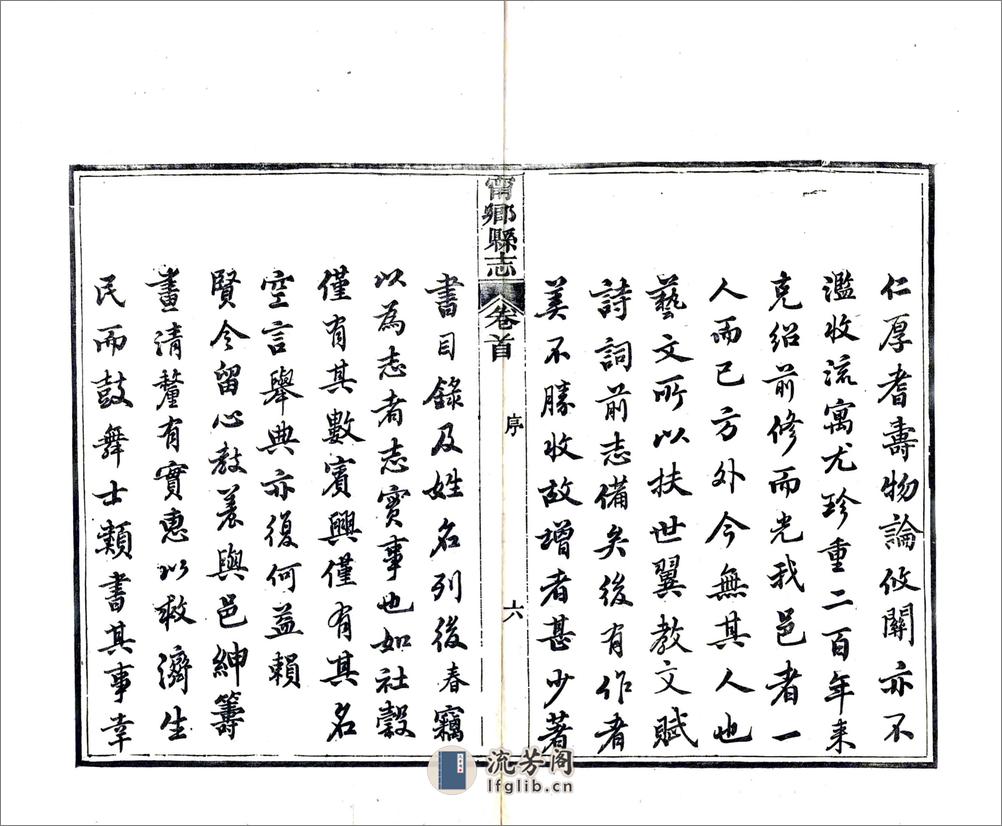 仁厚耆壽物論攸關亦不
濫收流寓尤珍重二百年来
克紹前修而光我邑者一
人而已方外今無其人也
藝文所以扶世翼教文賦
詩詞前志備矣後有作者
美不勝收故增者甚少著
甯鄉縣志
卷首
序
六
書目錄及姓名列後春竊
以為志者志實事也如社穀
僅有其數賓興僅有其名
空言舉典亦復何益賴
賢令留心教養與邑紳籌
畫清釐有實惠以救濟生
民而鼓舞士類書其事幸
流芳阁
lfglib.cn